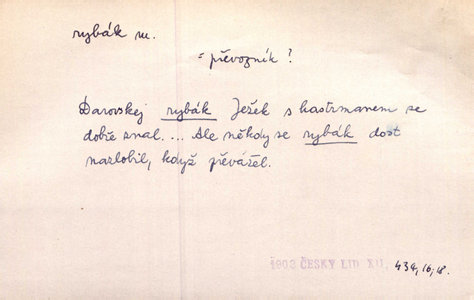 rybák m.
= převozník ?
Darovskej rybák Ježek s hastrmanem se
dobře znal. ... Ale někdy se rybák dost
nazlobil, když převážel.
1902 ČESKÝ LID XII, 434, 16, 18.